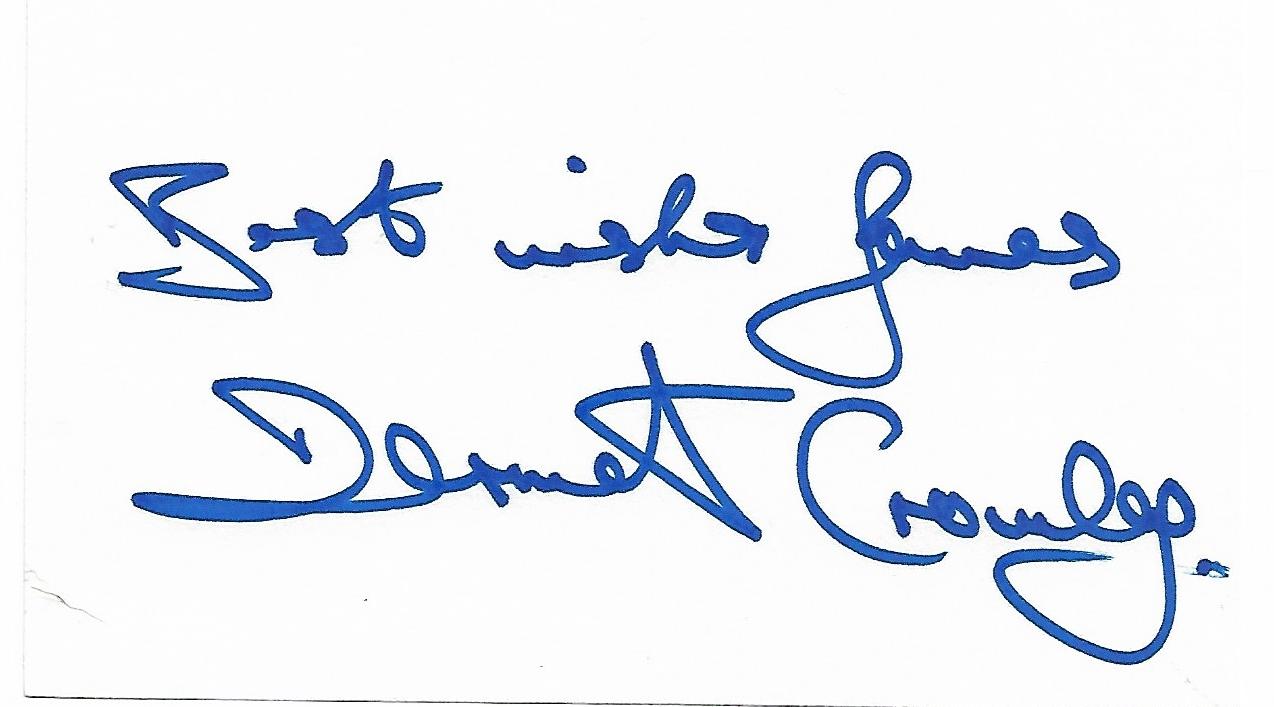 Best wishes James
Dermot Crowley.